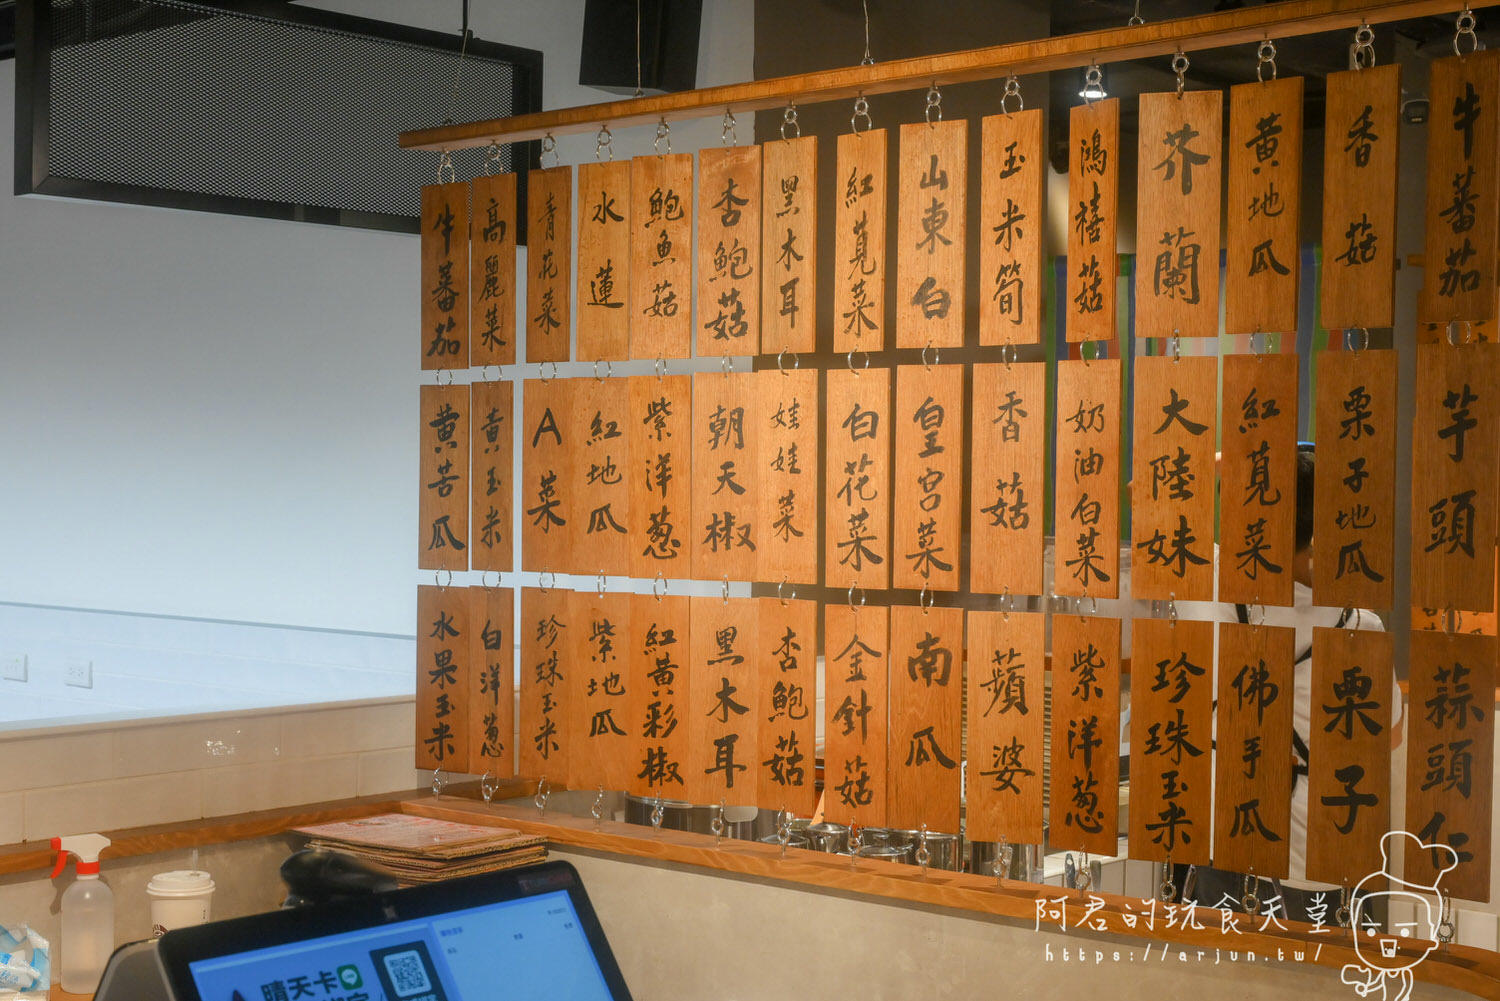 牛蕃茄
高麗菜
青花菜
水蓮
鮑魚菇
杏鮑菇
黑木耳
紅莧菜
山東白
玉米筍
鴻禧菇
芥蘭
黃地瓜
香菇
牛蕃茄
黃苦瓜
黃玉米
A菜
紅地瓜
紫洋葱
朝天椒
娃娃菜
白花菜
皇宮菜
香菇
奶油白菜
大陸妹
紅莧菜
栗子地瓜
芋頭
水果玉米
白洋葱
珍珠玉米
紫地瓜
紅黃彩椒
黑木耳
杏鮑菇
金針菇
南瓜
蘋婆
紫洋葱
珍珠玉米
佛手瓜
栗子
蒜頭仁
晴天卡
阿君的玩食天堂
https://arjun.tw/